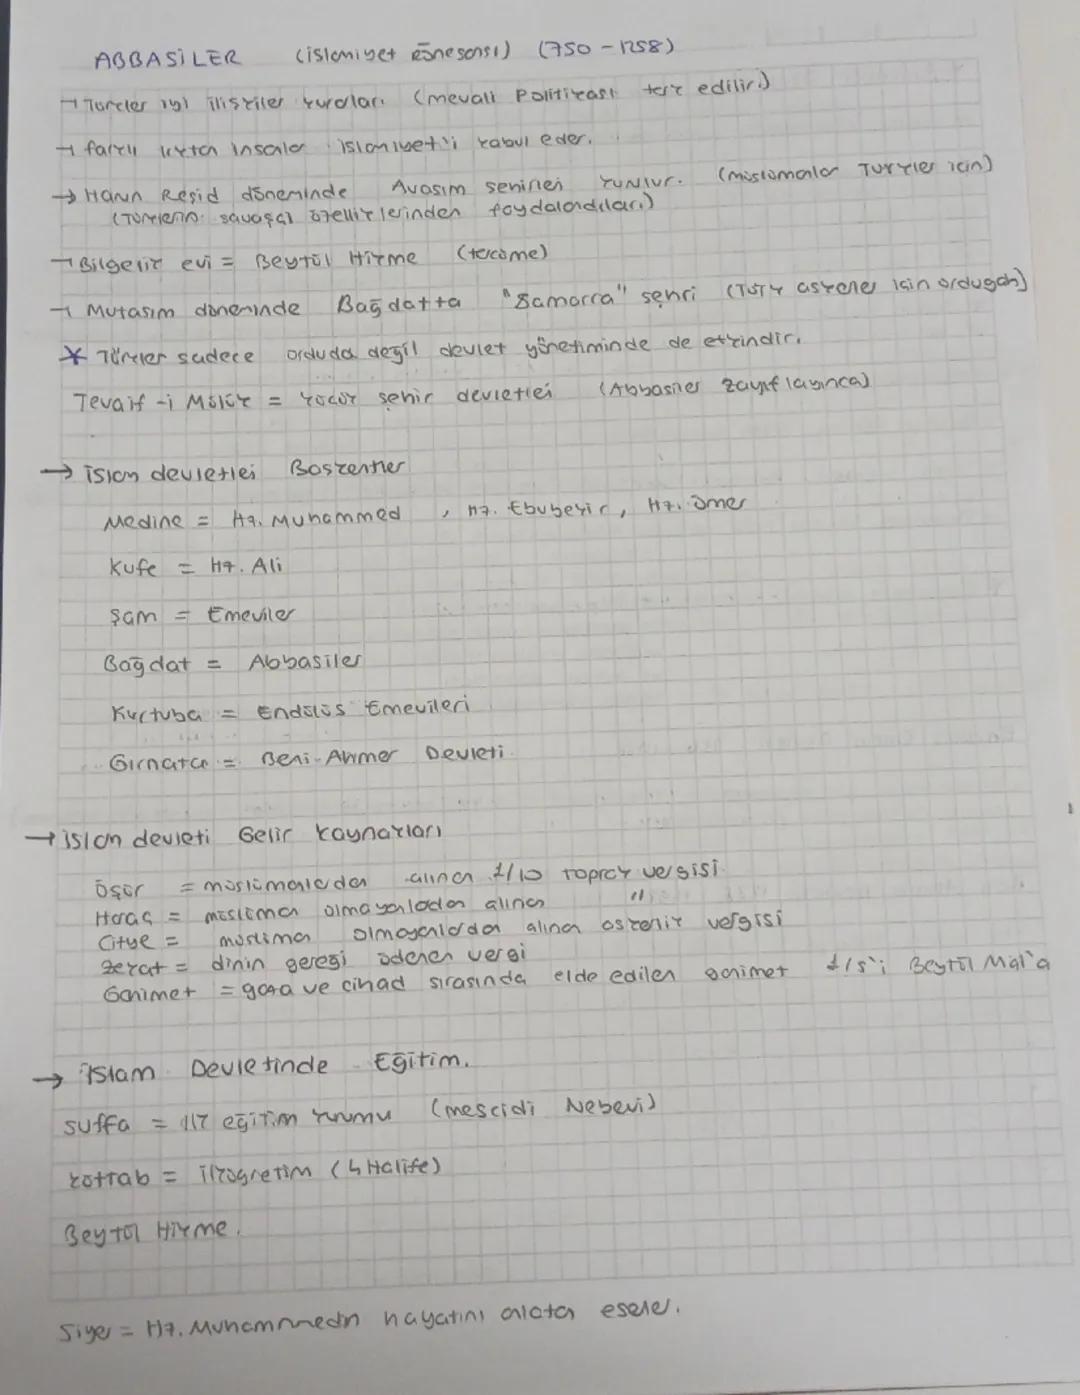 ABBASİLER (islamiyet rönesansı) (750 - 1258)
→ Türkler iyi ilişkiler kurdular. (mevali Politikası terk edilir.)
→ farklı ırktan insanlar islamiyet'i kabul eder.
→ Harun Reşid döneminde Avasım şehirleri kurulur. (müslümanlar Türkler için)
(Türklerin savaşçı özelliklerinden faydalandılar.)
→ Bilgelik evi = Beytül Hikme (tercüme)
→ Mutasım döneminde Bağdatta "Samarra" şehri (Türk askerler için ordugah)
* Türkler sadece orduda değil devlet yönetiminde de etkindir.
Tevaif-i Mülük = küçük şehir devletleri (Abbasiler zayıflayınca)
→ İslam devletleri Başkentler
Medine = Hz. Muhammed, Hz. Ebubekir, Hz. Ömer
Kufe = Hz. Ali
Şam = Emeviler
Bağdat = Abbasiler
Kurtuba = Endülüs Emevileri
Gırnata = Beni-Ahmer Devleti
→ islam devleti Gelir kaynakları
Öşür = müslümanlardan alınan 1/10 toprak vergisi
Haraç = müslüman olmayanlardan alınan "
Cizye = müslüman olmayanlardan alınan askerlik vergisi
Zekat = dinin gereği ödenen vergi
Ganimet = gaza ve cihad sırasında elde edilen ganimet 1/5'i Beytül Mal'a
→ İslam Devletinde Eğitim.
Suffa = ilk eğitim kurumu (mescidi Nebevi)
küttab = ilköğretim (4 Halife)
Beytül Hikme.
Siyer = Hz. Muhammedin hayatını anlatan eserler.